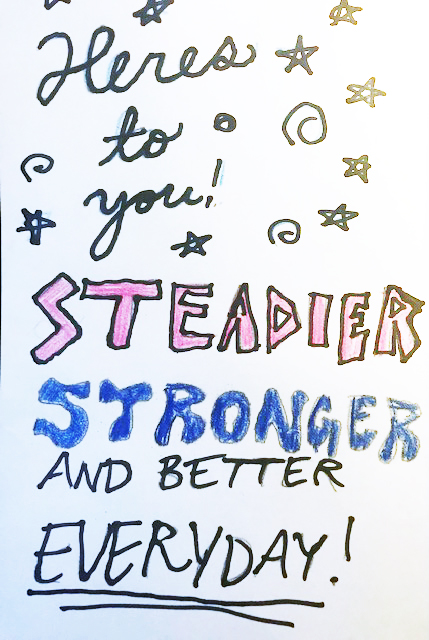 Heres
to
you!
STEADIER
STRONGER
AND BETTER
EVERYDAY!